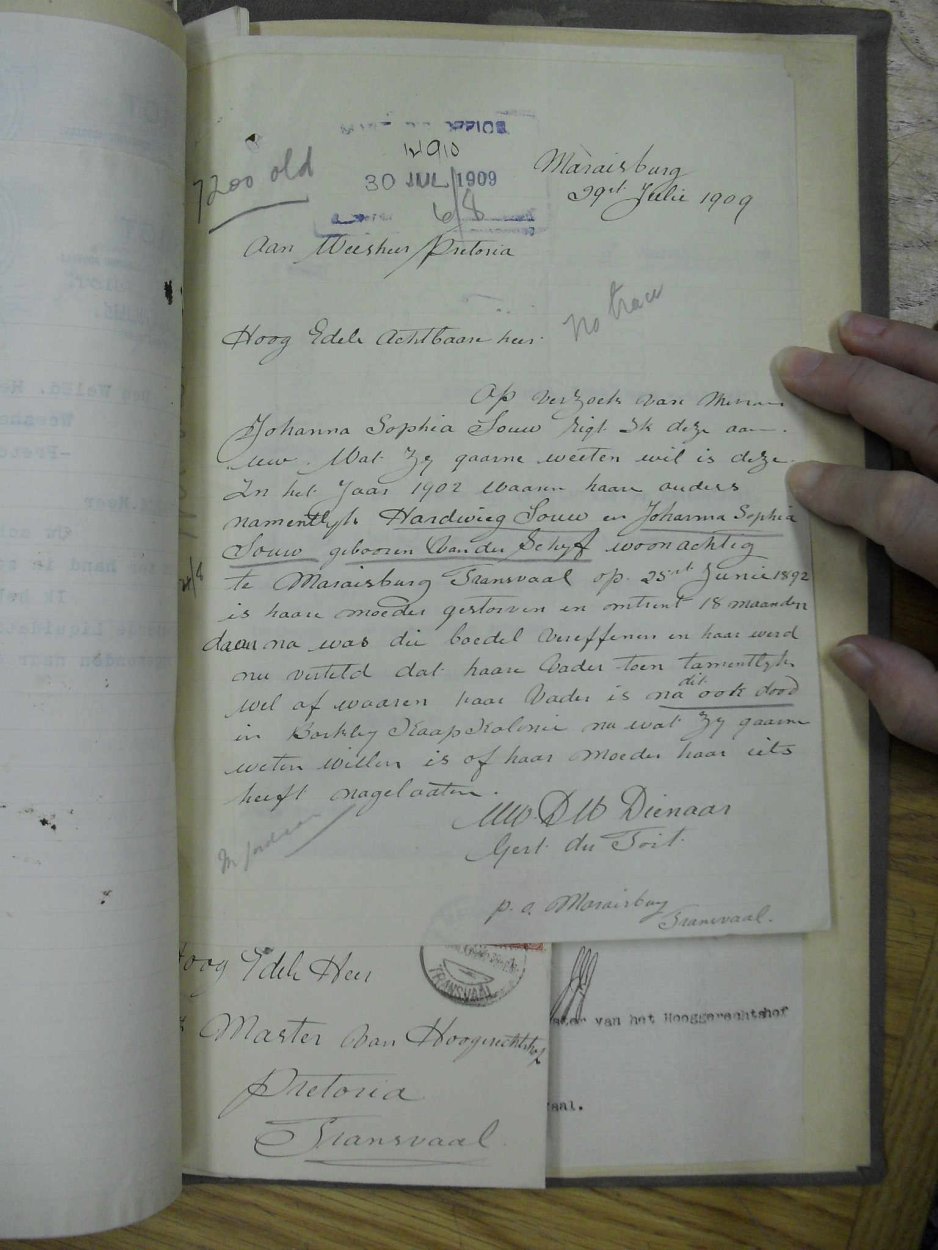 7200 old
30 JUL 1909
6/8
Maraisburg
29st Julie 1909
Aan Weesheer/Pretoria
No trace
Hoog Edele Achtbaare heer
Op verzoek van
Johanna Sophia Souw rigt Ik deze aan
uw. Wat Zy gaarne weeten wil is deze
In het Jaar 1902 waaren haare ouders
namentlyk Hardwieg Souw en Johanna Sophia
Souw gebooren Van der Schyf woonachtig
te Maraisburg Transvaal op 25st Junie 1892
is haare moeder gestorven en omtrent 18 maanden
daar na was die boedel vereffenen en haar werd
nu verteld dat haare Vader toen tamentlyk
wel af waaren haar Vader is na dit ook dood
in Barkley Kaap Kolonie nu wat Zy gaarne
weten willen is of haar moeder haar iets
heeft nagelaaten.
UW. D W Dienaar
Gert du Toit
p. a. Maraisburg
Transvaal.
Hoog Edele Heer
Master van Hoogerechtshof
Pretoria
Transvaal
TRANSVAAL
van het Hooggerechtshof
aal.
Den Weled. He
Weeshee
-Preto
Heer
hand is
Ik he